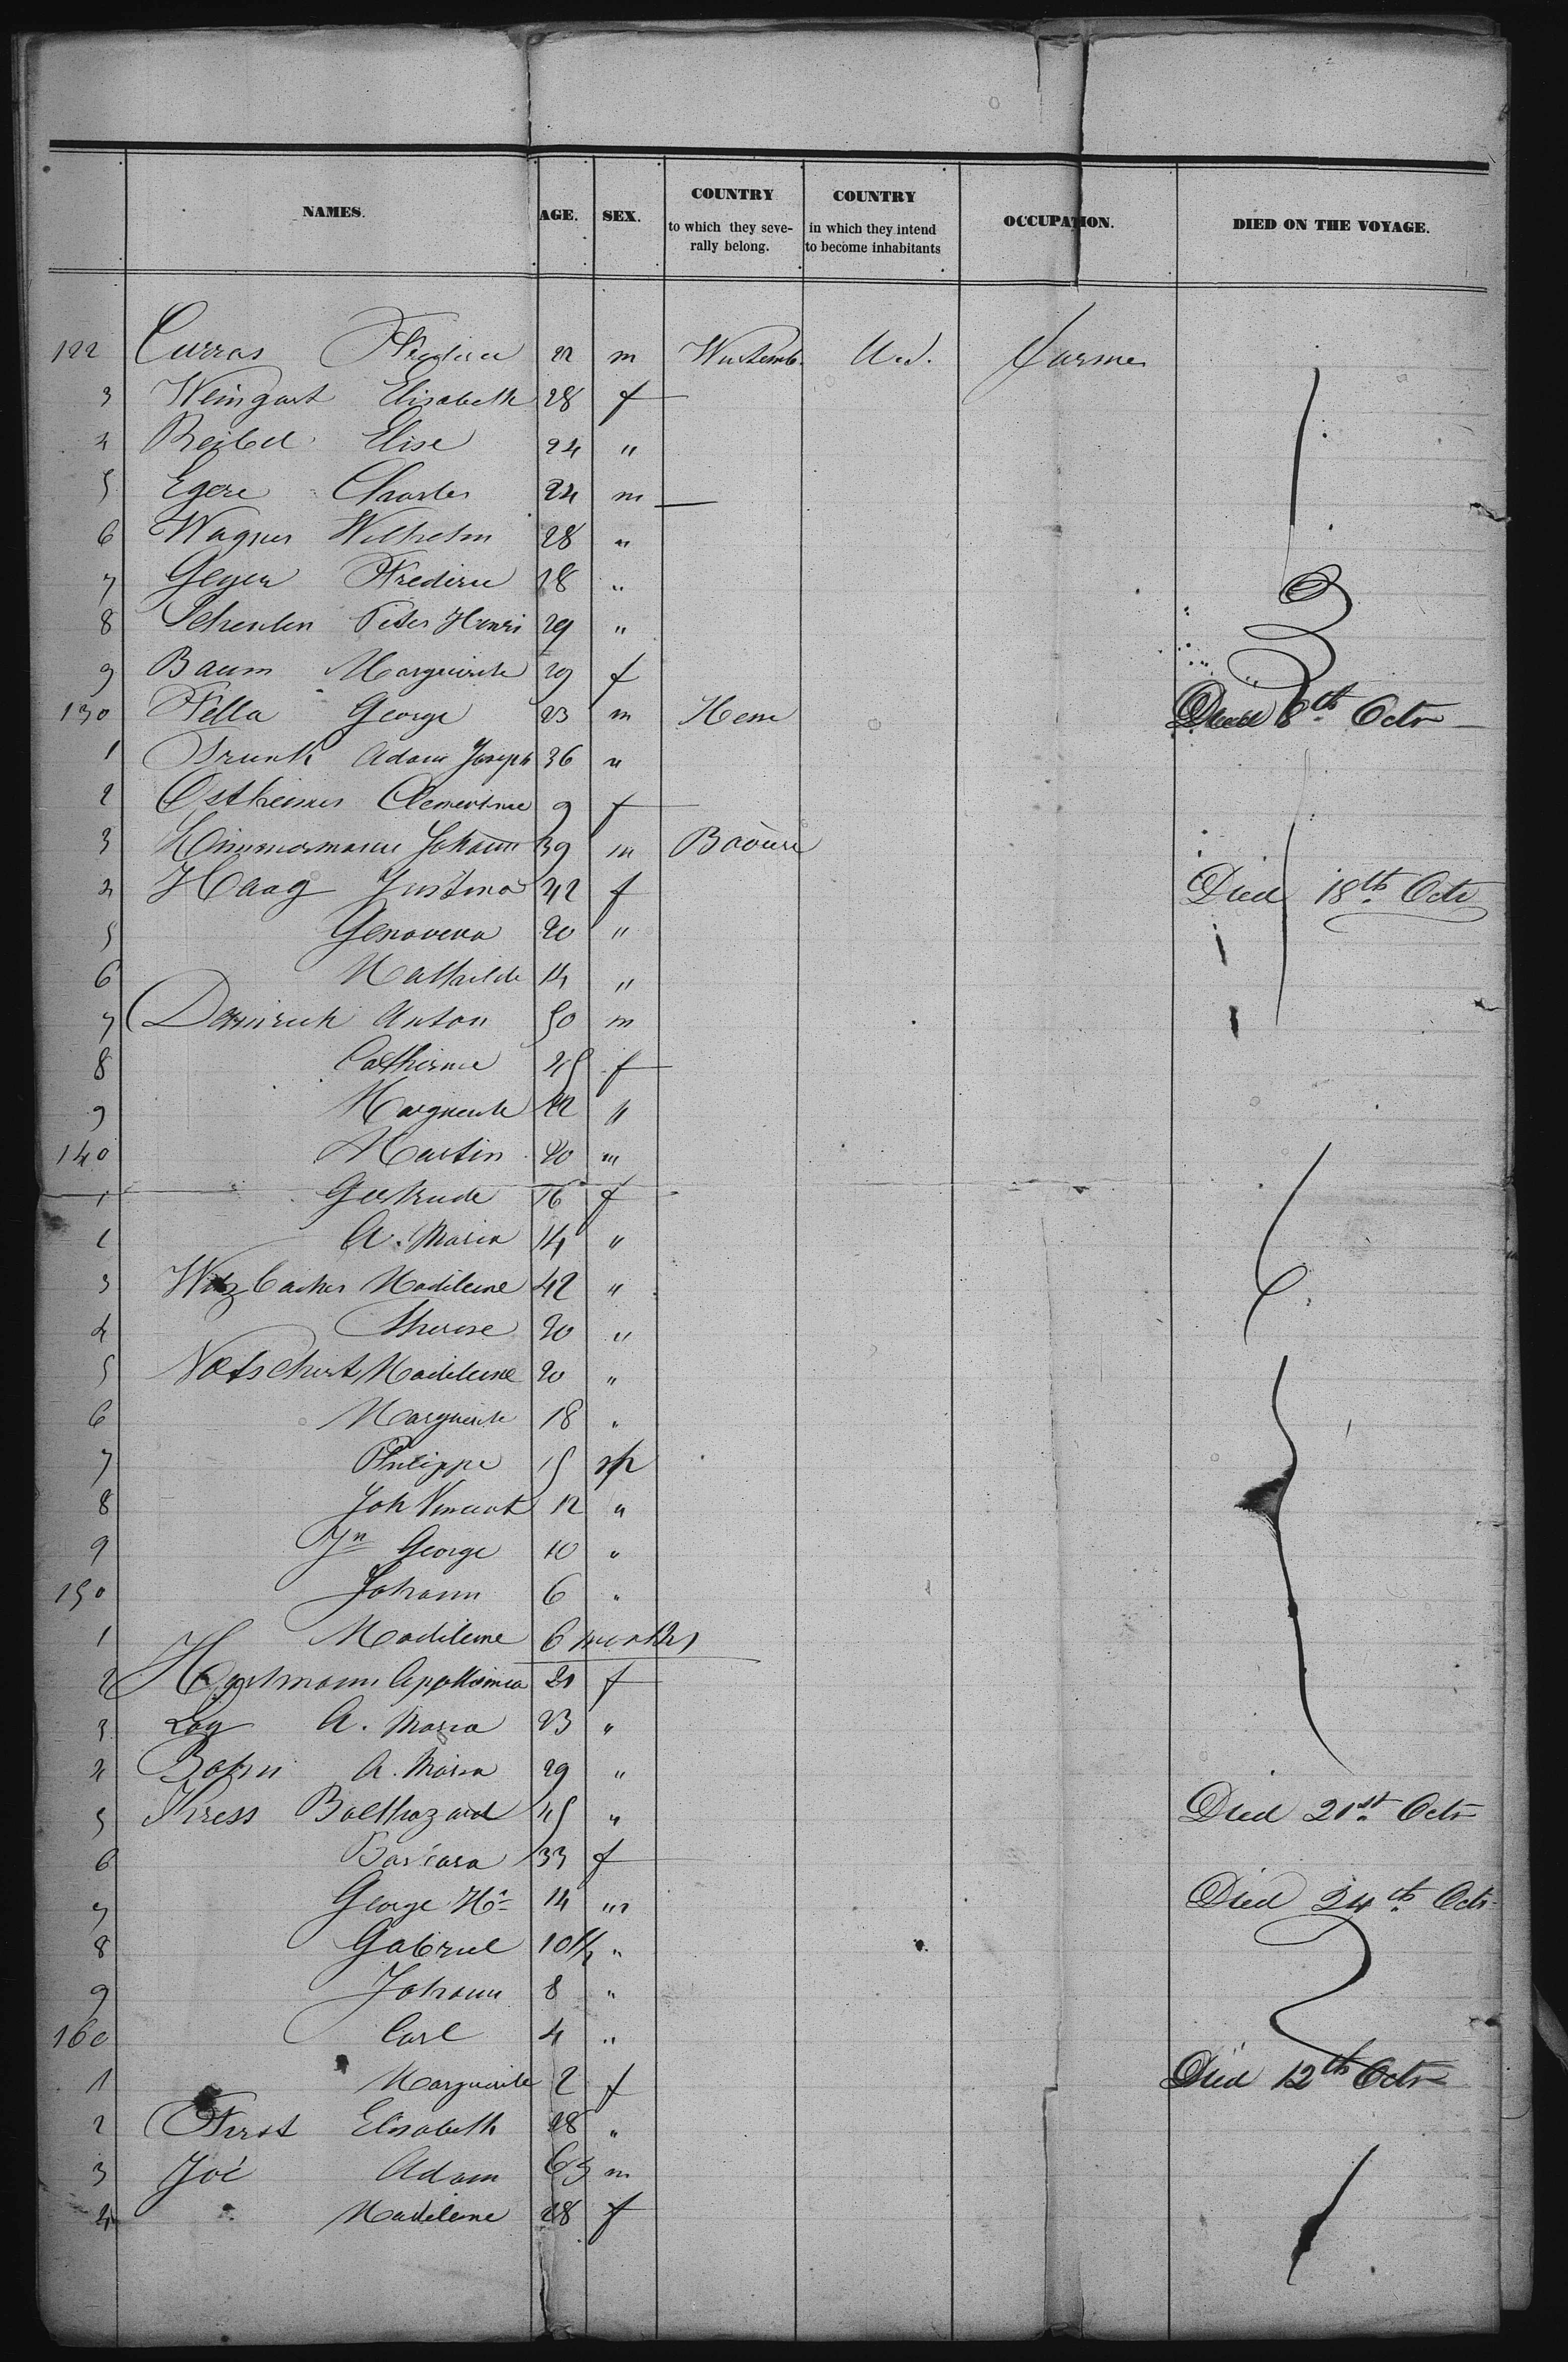 NAMES. AGE. SEX. COUNTRY to which they seve- rally belong. COUNTRY in which they intend to become inhabitants OCCUPATION. DIED ON THE VOYAGE.
122 Curras 22 m Wurtemb. Farmer
3 Weingart Elisabeth 28 f
4 Reibel Elise 24 "
5 Egere Charles 24 m
6 Wagner Wilhelm 28 "
7 Geyer 18 "
8 Peter Henri 29 "
9 Baum Marguerite 29 f
130 Fella George 23 m Hesse Died 8th Octr
1 Trunk Adam Joseph 36 "
2 Ostheimer Clementine 9 f
3 Johann 39 m
4 Haag Justina 42 f Died 18th Octr
5 Genoveva 20 "
6 Mathilde 14 "
7 Anton 50 m
8 Catherine 45 f
9 Marguerite 22 "
140 Martin 20 m
1 Gertrude 16 f
2 A. Maria 14 "
3 Madeleine 42 "
4 Therese 20 "
5 Notschert Madeleine 20 "
6 Marguerite 18 "
7 Philippe 15 m
8 Joh Vincent 12 "
9 Jn George 10 "
150 Johann 6 "
1 Madeleine 6 months
2 Hartmann Apollonia 21 f
3 Log A. Maria 23 "
4 Bohn A. Maria 29 "
5 Kress Balthazard 45 " Died 21st Octr
6 Barbara 33 f
7 George 14 m Died 24th Octr
8 Gabriel 10½ "
9 Johann 8 "
160 Carl 4 "
1 Marguerite 2 f Died 12th Octr
2 First Elisabeth 28 "
3 Joé Adam 65 m
4 Madeleine 28 f